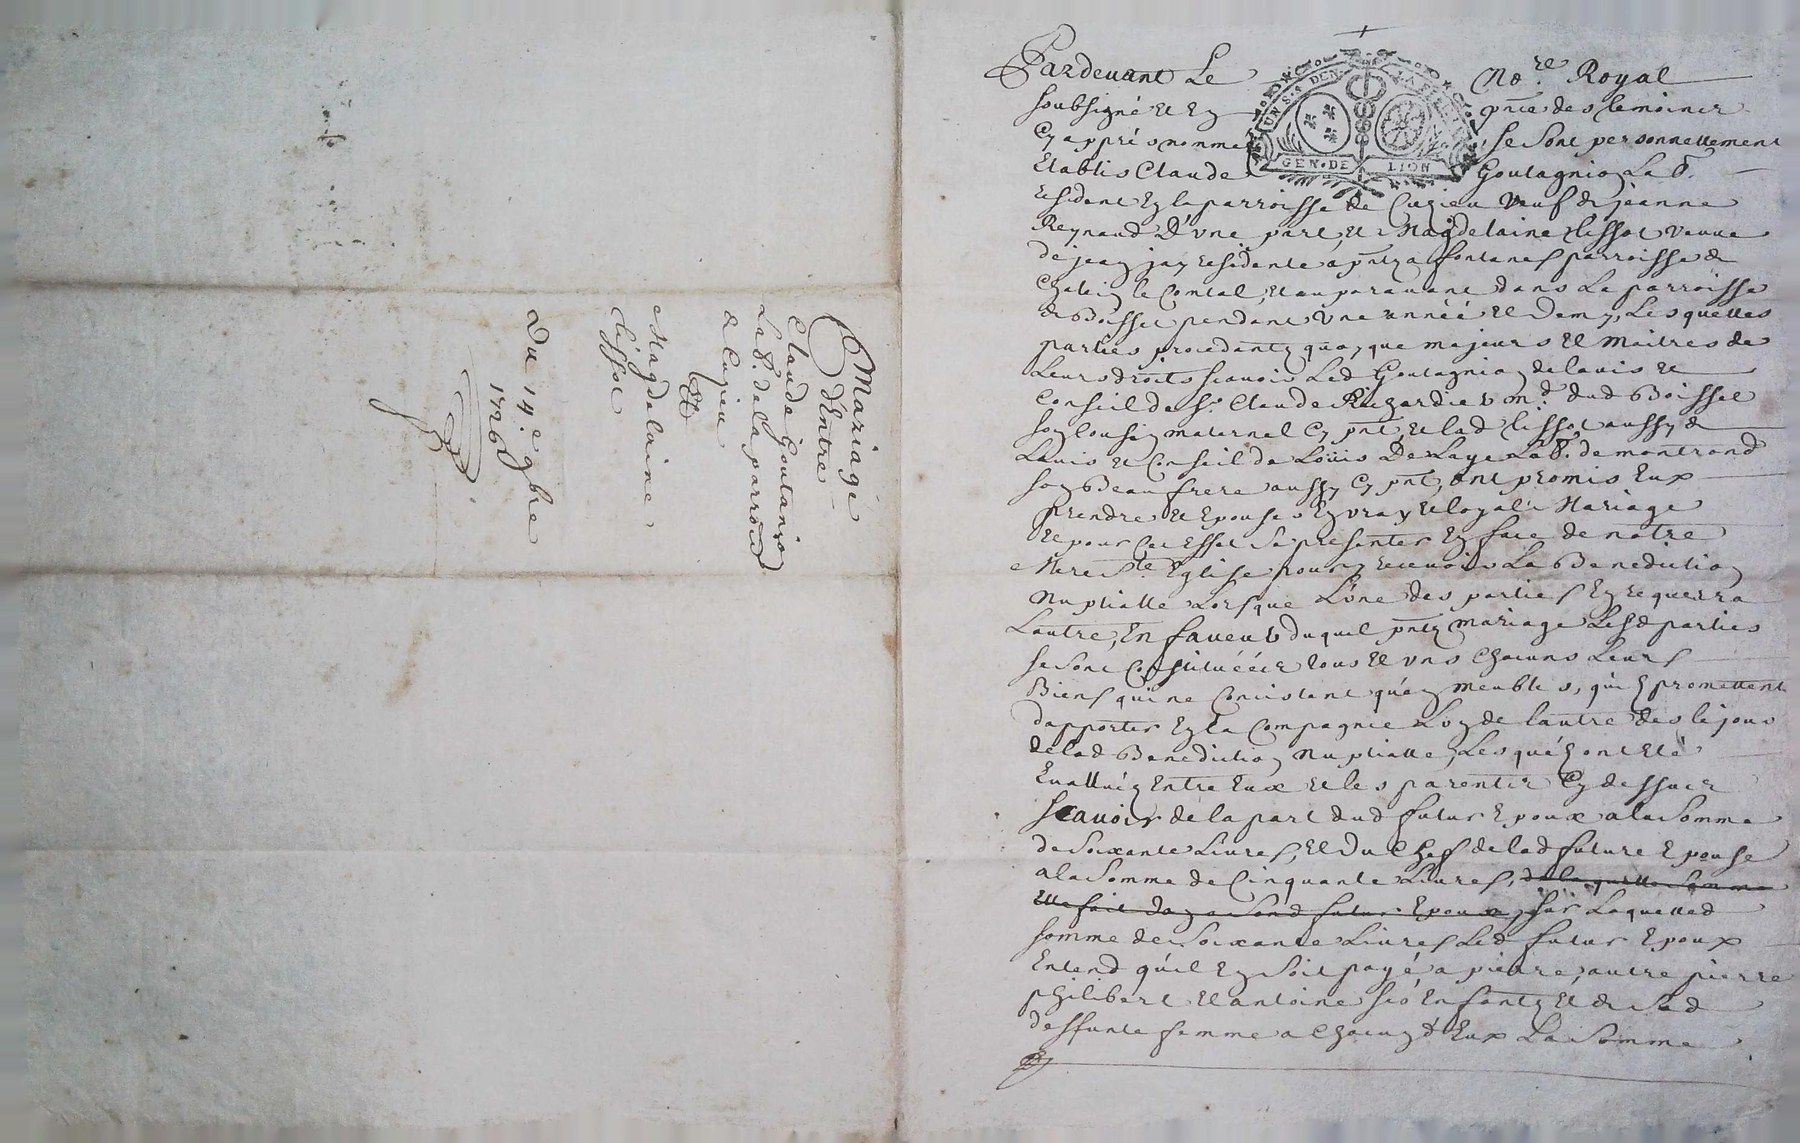 Mariage
d'Entre
Claude Goutanion
Lab.r de la parroisse
de Cuzieu
Et
Magdelaine
Clissot
Du 14.e 9bre
1726
Pardevant Le No.re Royal
soubsigné et En pnce des temoiner
Cy apprés nommes se sont personnellement
Etablis Claude Goutagnion La.r
UN S. 4 DEN.
GEN. DE LION
residant En la parroisse de Cuzieu veuf de jeanne
Reynaud D'une part, et Magdelaine Clissot veuve
de jean jay residente a pntz a fontanes parroisse de
Chatin le Comtal, et auparavant dans La parroisse
de Boisset pendant une année et Demy, Lesquelles
parties procedantz quoyque majeurs et Maitres de
Leurs droits scavoir Led Goutagnion de lavis et
Conseil de Sr. Claude Rigardie m.d dud Boisset
son Cousin maternel Cy pnt, et lad Clissot aussy de
Lavis et Conseil de Loüis DeLaye La.r de montrond
son Beau frere aussy Cy pnt, ont promis Eux
prendre et Epouser En vray et loyal Mariage
Et pour Cet Effet se presenter En face de notre
Mere Ste Eglise pour y recevoir La Benediction
Nuptialle Lorsque L'une des parties En requerra
Lautre, En faveur duquel pntz mariage Lesd parties
se sont Constituéér tous et uns Chacuns Leurs
Biens qui ne Concistent qu'en meubles, qu'ilz promettent
d'apporter En la Compagnie L'un de lautre des le jour
de lad Benediction Nuptialle, Lesquelz ont Eté
Evalluéz Entre Eux et les parentir Cy dessuer
scavoir de la part dud futur Epoux a la somme
de soixante Livres, et Du Chef de lad future Epouse
a la somme de Cinquante Livres, de laquelle somme
Elle fait don a sond futur Epoux, sur Laquelled
somme de soixante Livres Led futur Epoux
Entend qu'il En soit payé a pierre, autre pierre
philibert et antoine sés Enfantz et de sad
deffunte femme a Chacun d'Eux La somme